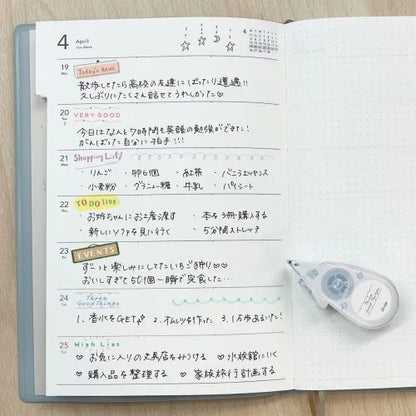 4 April
19
Today's News
散歩してたら高校の友達にばったり遭遇!!
久しぶりにたくさん話せてうれしかった♡
20
VERY GOOD
今日はなんと7時間も英語の勉強ができた!
がんばった自分に拍手!!!
21
Shopping List
・りんご ・卵6個 ・紅茶 ・バニラエッセンス
・小麦粉 ・グラニュー糖 ・牛乳 ・パイシート
22
TO DO list
・お姉ちゃんにお土産渡す ・本を3冊購入する
・新しいソファを見に行く ・5分間ストレッチ
23
EVENTS
ずーっと楽しみにしてたいちご狩り♡♡
おいしすぎて50個一瞬で完食した…
24
Three Good Things
1. 香水をGET 2. オムレツを作った 3. 1万歩あるいた!
25
Wish List
♡ お気に入りの文具店をみつける ♡ 水族館にいく
♡ 購入品を整理する ♡ 家族旅行計画する
4